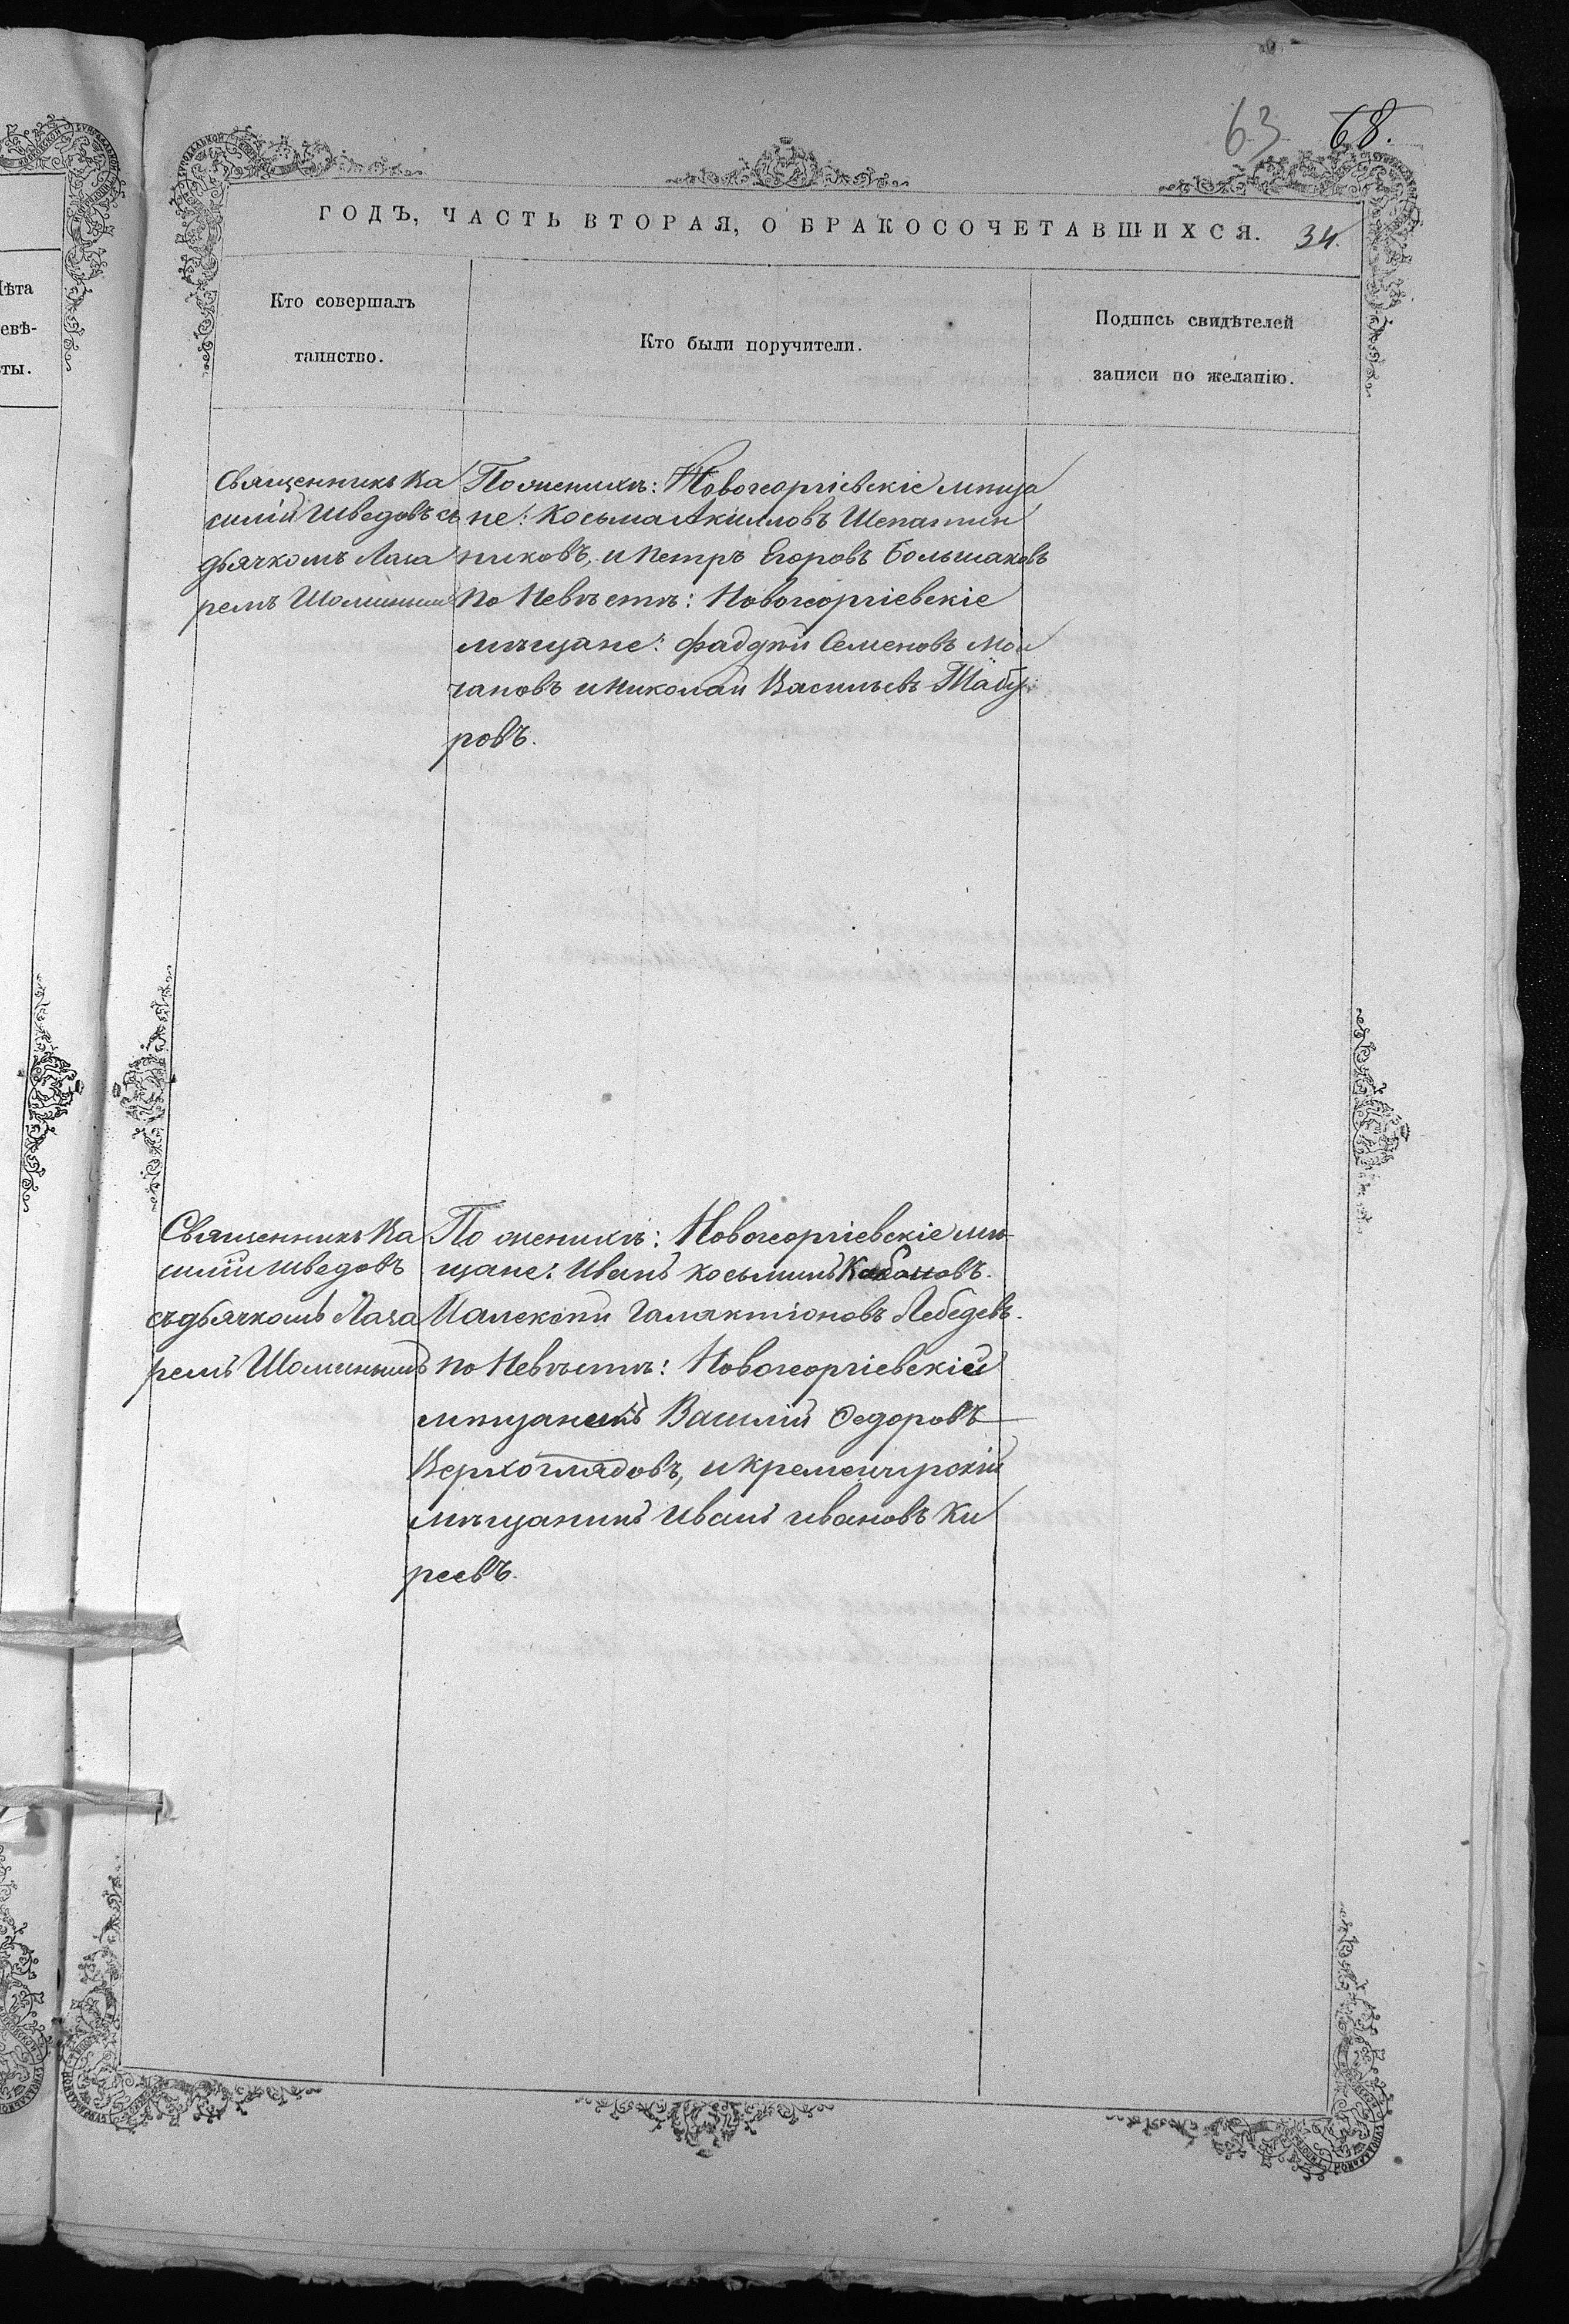 63 68.
ГОДЪ, ЧАСТЬ ВТОРАЯ, О БРАКОСОЧЕТАВШИХСЯ. 34.
Кто совершалъ
таинство.
Кто были поручители.
Подпись свидѣтелей
записи по желанію.
Лѣта
евѣ-
ты.
Священникъ Ва
силій Шведовъ съ
дьячкомъ Лаза
ремъ
По женихѣ: Новогеоргіевскіе мѣща
не: Косьма Акиловъ
никовъ, и Петръ Егоровъ Большаковъ
По Невѣстѣ: Новогеоргіевскіе
мѣщане: Фаддѣй Семеновъ Мол
чановъ и Николай Васильевъ Табу
ровъ.
Священникъ Ва
силій Шведовъ
съ дьячкомъ Лаза
ремъ
По женихѣ: Новогеоргіевскіе мѣ
щане: Иванъ Косьминъ
И Алексѣй Галактіоновъ Лебедевъ.
По Невѣстѣ: Новогеоргіевскій
мѣщанинъ Василій Федоровъ
Верхоглядовъ, и Кременчугскій
мѣщанинъ Иванъ Ивановъ Ки
реевъ.